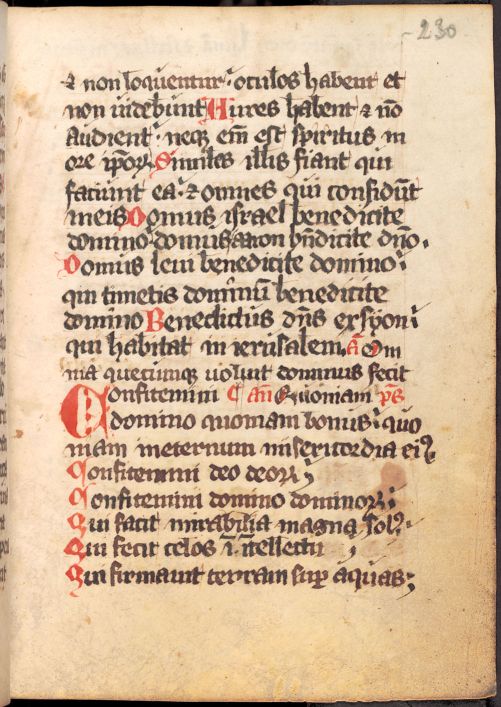 230
⁊ non loquentur · oculos habent et
non uidebunt Aures habent ⁊ nō
audient · neq; em̄ est spiritus in
ore ip̄oꝝ. Similes illis fiant qui
faciunt ea · ⁊ omnes qui confidūt
in eis Domus israel benedicite
domino · domus aaron bn̄dicite dn̄o.
Domus leui benedicite domino :
qui timetis dominū benedicite
domino Benedictus dn̄s ex syon :
qui habitat in ierusalem. a᷈ Om
nia quecumq; uoluit dominus fecit
Confitemini an̄ Quoniam ps̄
domino quoniam bonus : quo
niam in eternum misericordia eiꝰ.
Confitemini deo deoꝝ ;
Confitemini domino dominoꝝ ;
Qui facit mirabilia magna solꝰ.
Qui fecit celos ī ītellectu ;
Qui firmauit terram sup̄ aquas ;